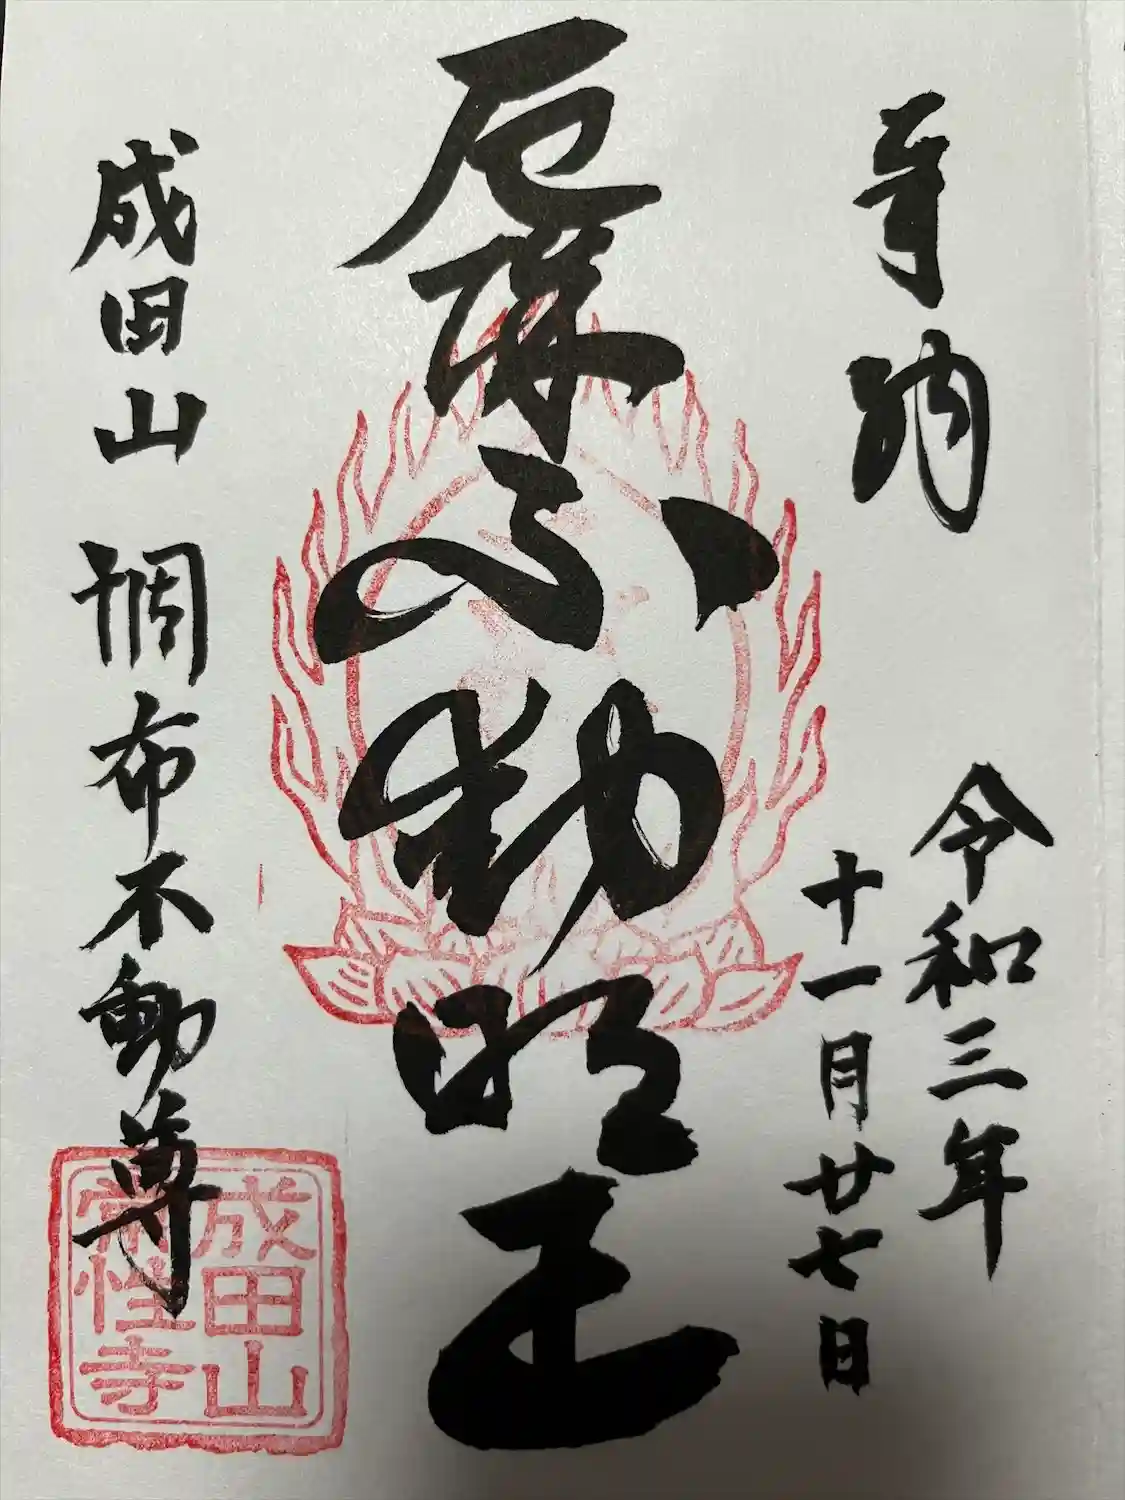 奉納
令和三年
十一月廿七日
厄除不動明王
成田山 調布不動尊
成田山
常性寺